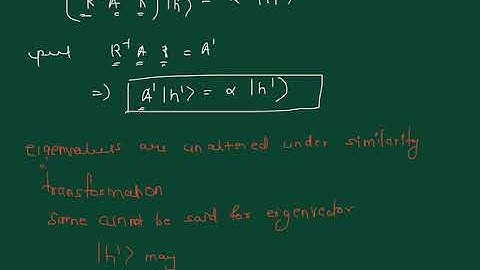 (R⁻¹ A R) |h'⟩ = α |h'⟩
put R⁻¹ A R = A'
=) A' |h'⟩ = α |h'⟩
Eigenvalues are unaltered under similarity
transformation
Same cannot be said for eigenvector
|h'⟩ may